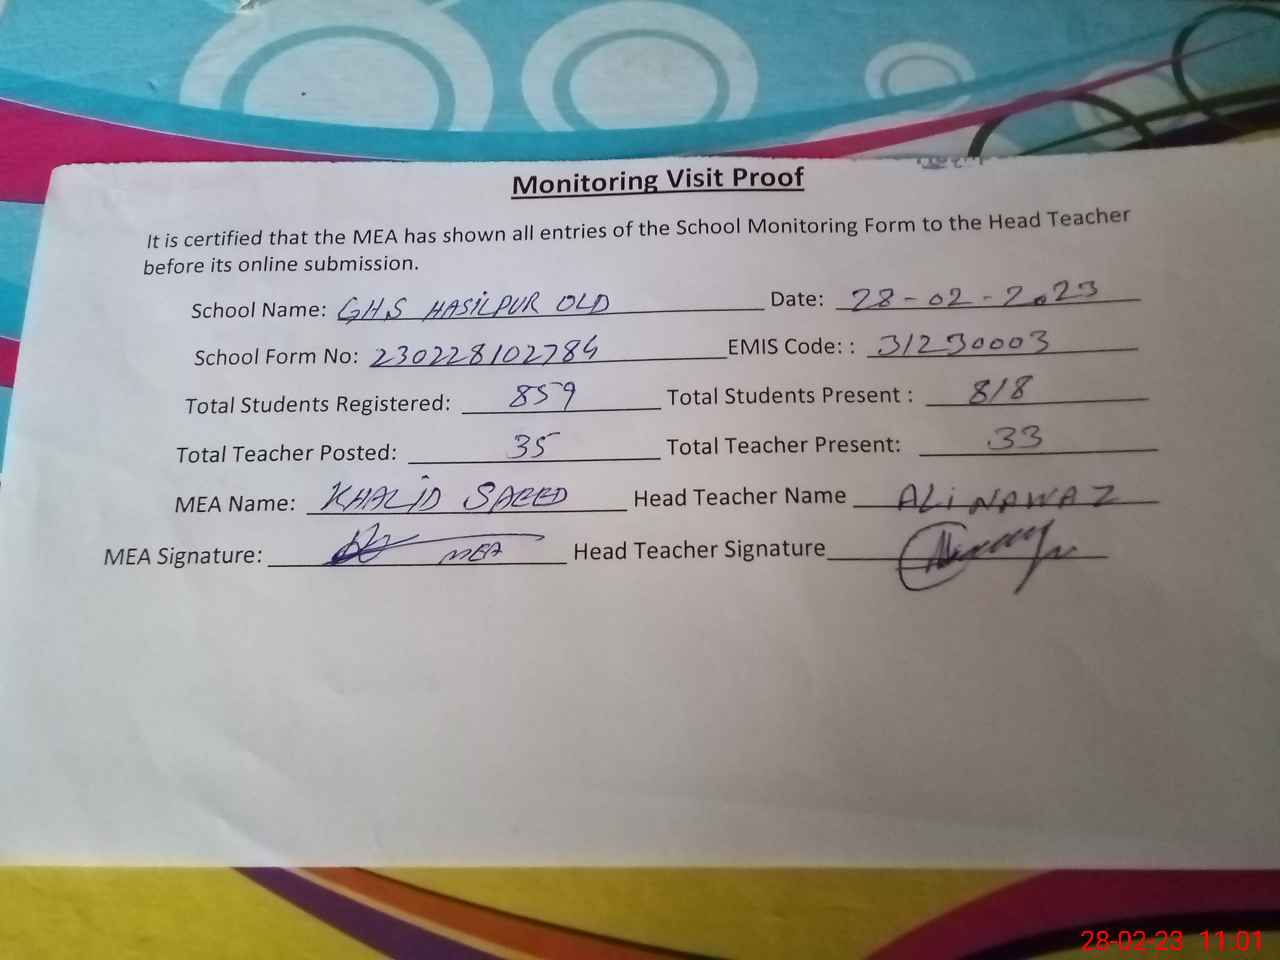 Monitoring Visit Proof
It is certified that the MEA has shown all entries of the School Monitoring Form to the Head Teacher
before its online submission.
School Name: GHS HASILPUR OLD Date: 28-02-2023
School Form No: 230228102784 EMIS Code: : 31230003
Total Students Registered: 859 Total Students Present : 818
Total Teacher Posted: 35 Total Teacher Present: 33
MEA Name: KHALID SAEED Head Teacher Name ALI NAWAZ
MEA Signature: MEA Head Teacher Signature
28-02-23 11:01